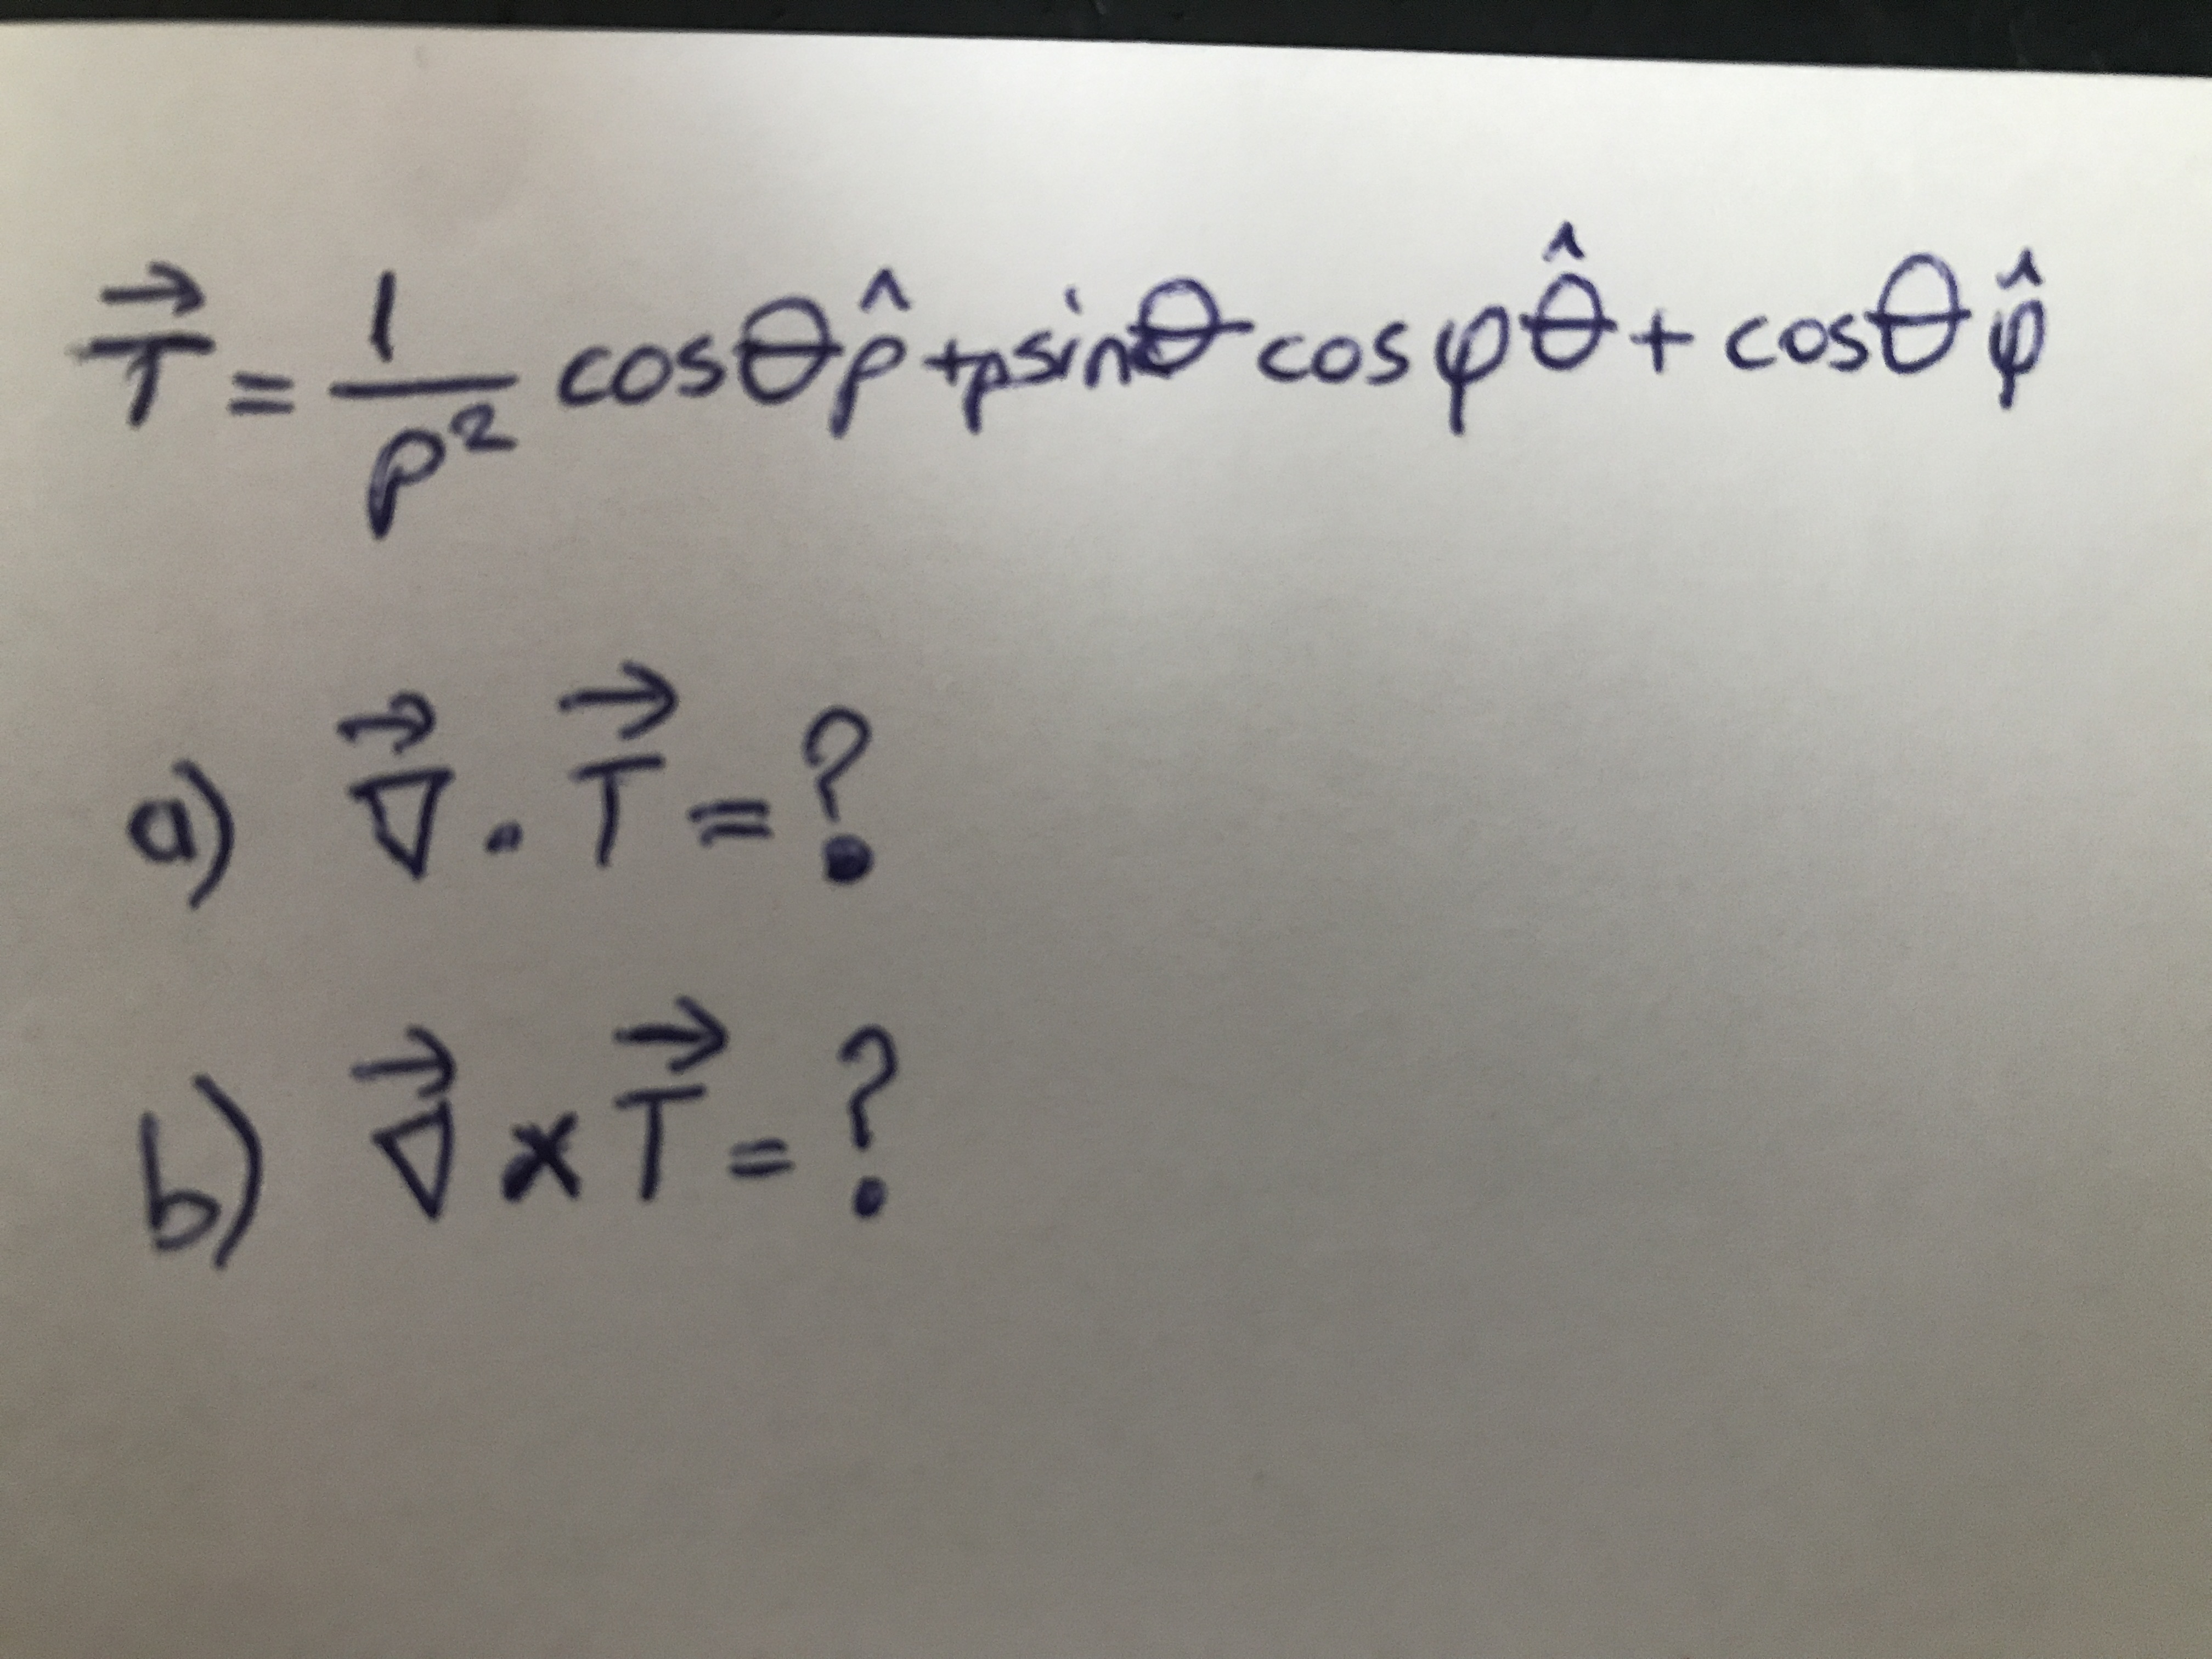 T⃗ = 1/ρ² cosθ ρ̂ + ρ sinθ cosφ θ̂ + cosθ φ̂
a) ∇⃗ . T⃗ = ?
b) ∇⃗ × T⃗ = ?